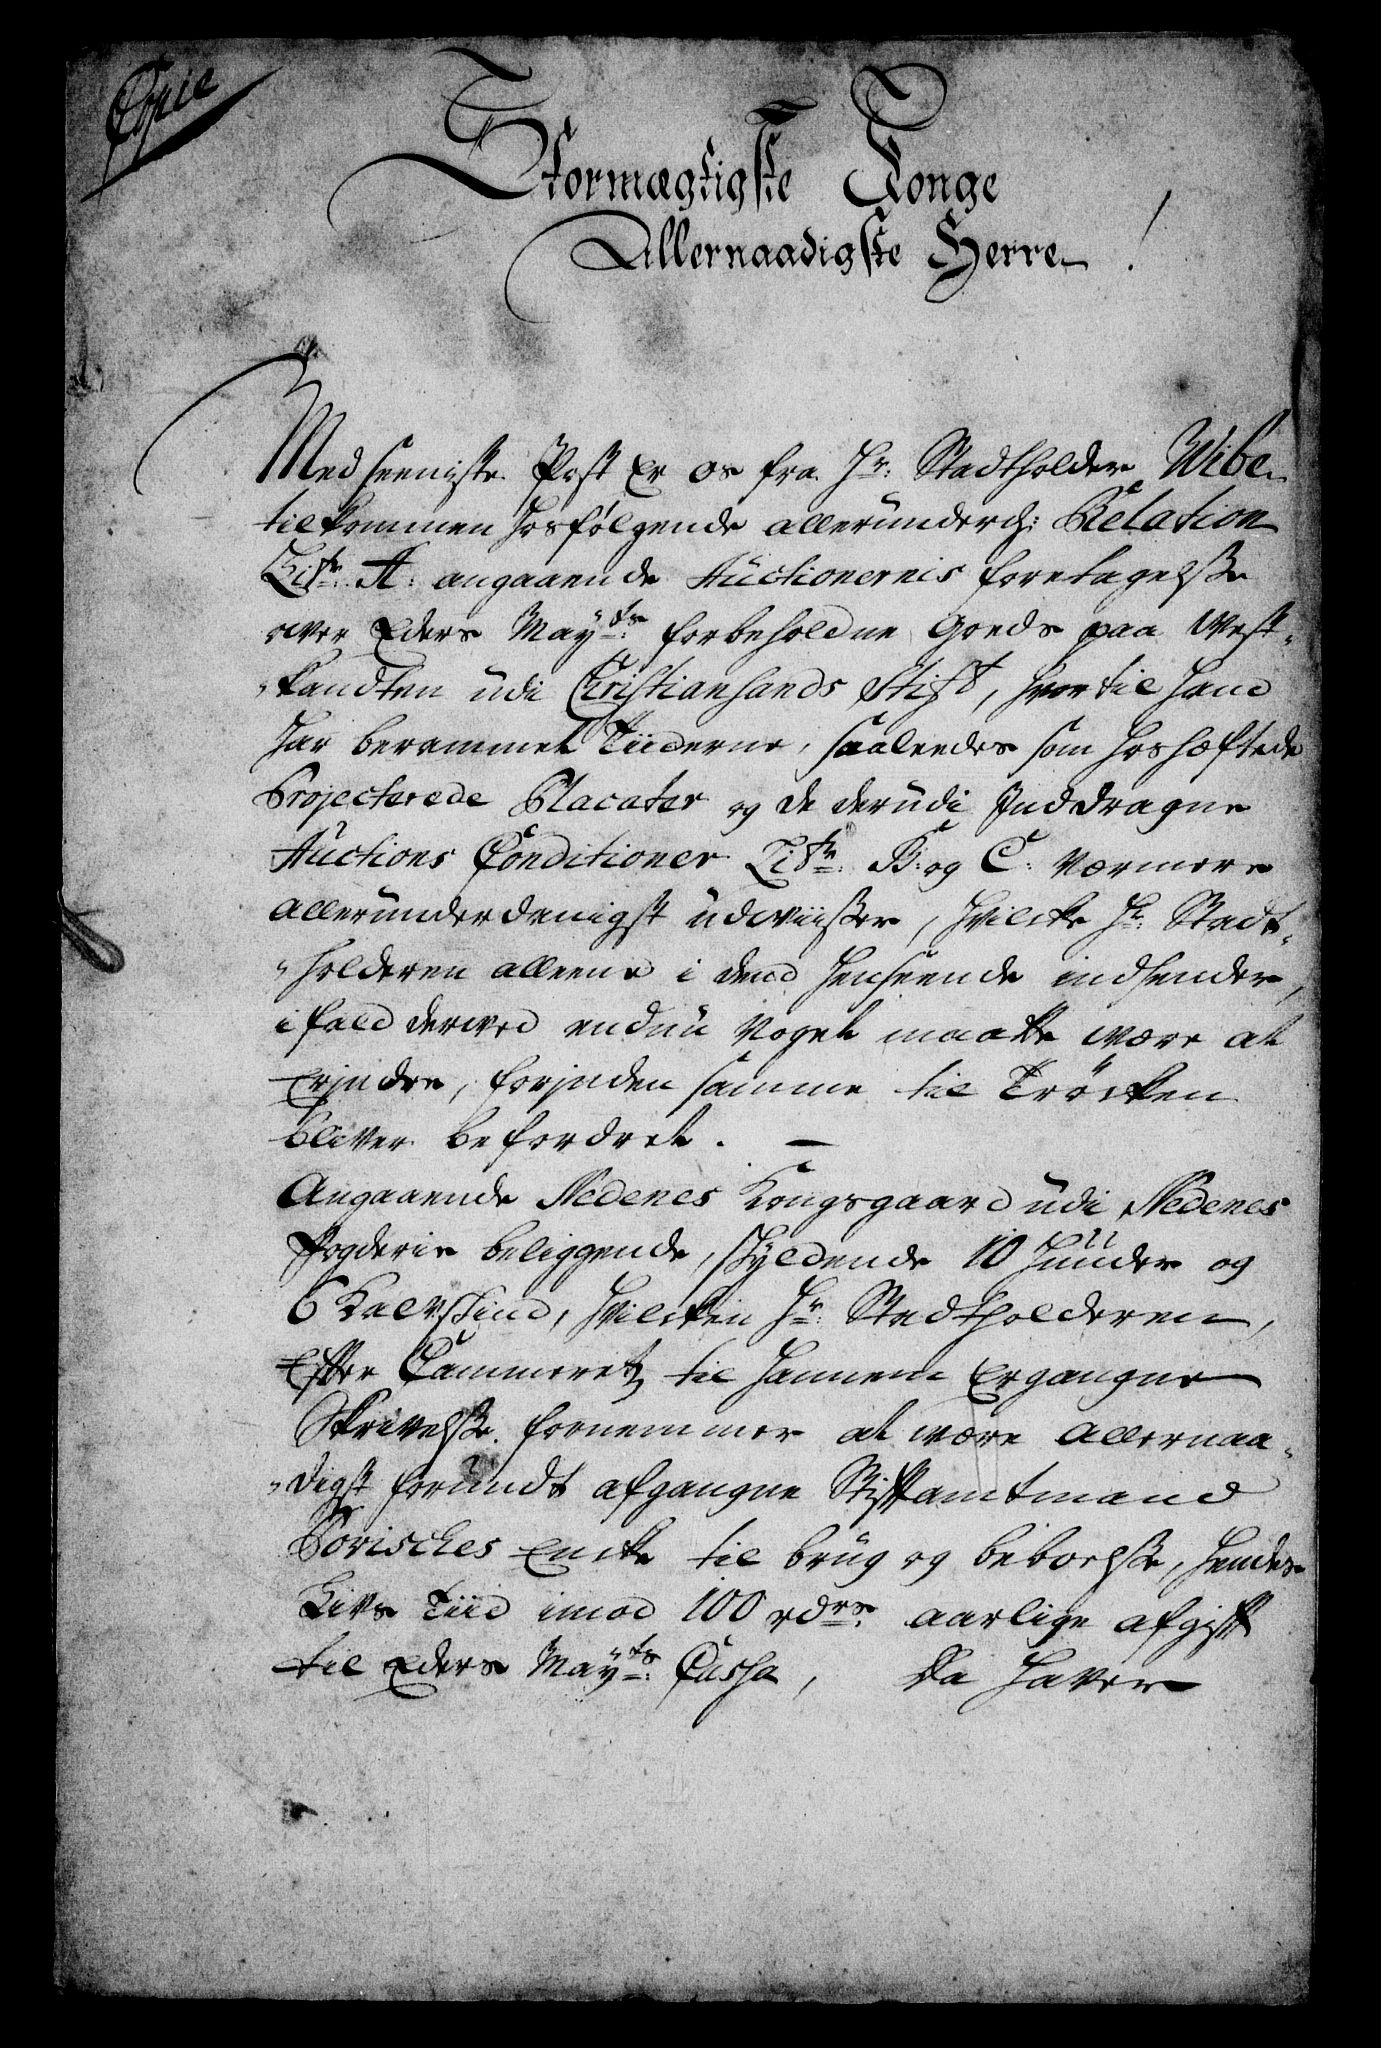 Copie
Stormægtigste Konge
Allernaadigste Herre !
Med seeniste Post er os fra Hr: Stadtholder Wibe
tilkommen hosfølgende allerunderd: Relation
Litr: A: angaaende Auctionernis foretagelse
over Eders Mayts: forbeholdne Goeds paa West-
-kandten udi Christiansands Stift, hvortil hand
har berammet Tiiderne, saaleedes som hoshæftede
Projecterede Placater og de derudi Inddragne
Auctions Conditioner Litr: B: og C: nærmere
allerunderdanigst udwiißer, hvilcke Hr: Stadt-
-holderen alleene i dend henseende indsender,
ifald derved endnu noget maatte være at
erindre, forinden samme til Trøcken
bliver befordret. —
Angaaende Nedenes Kongsgaard udi Nedenes
Fogderie beliggende, skyldende 10 huuder og
6 Kalvskind, hvilcken Hr: Stadtholderen,
efter Cammeretz til hannem ergangne
Skrivelse fornemmer at være allernaa-
-digst forundt afgangne Stiftamtmand
Povisches Encke til brug og beboelse, hendes
Livs Tiid imod 100 rdrs: aarlige afgift
til Eders Mayts: Cassa, Da haver